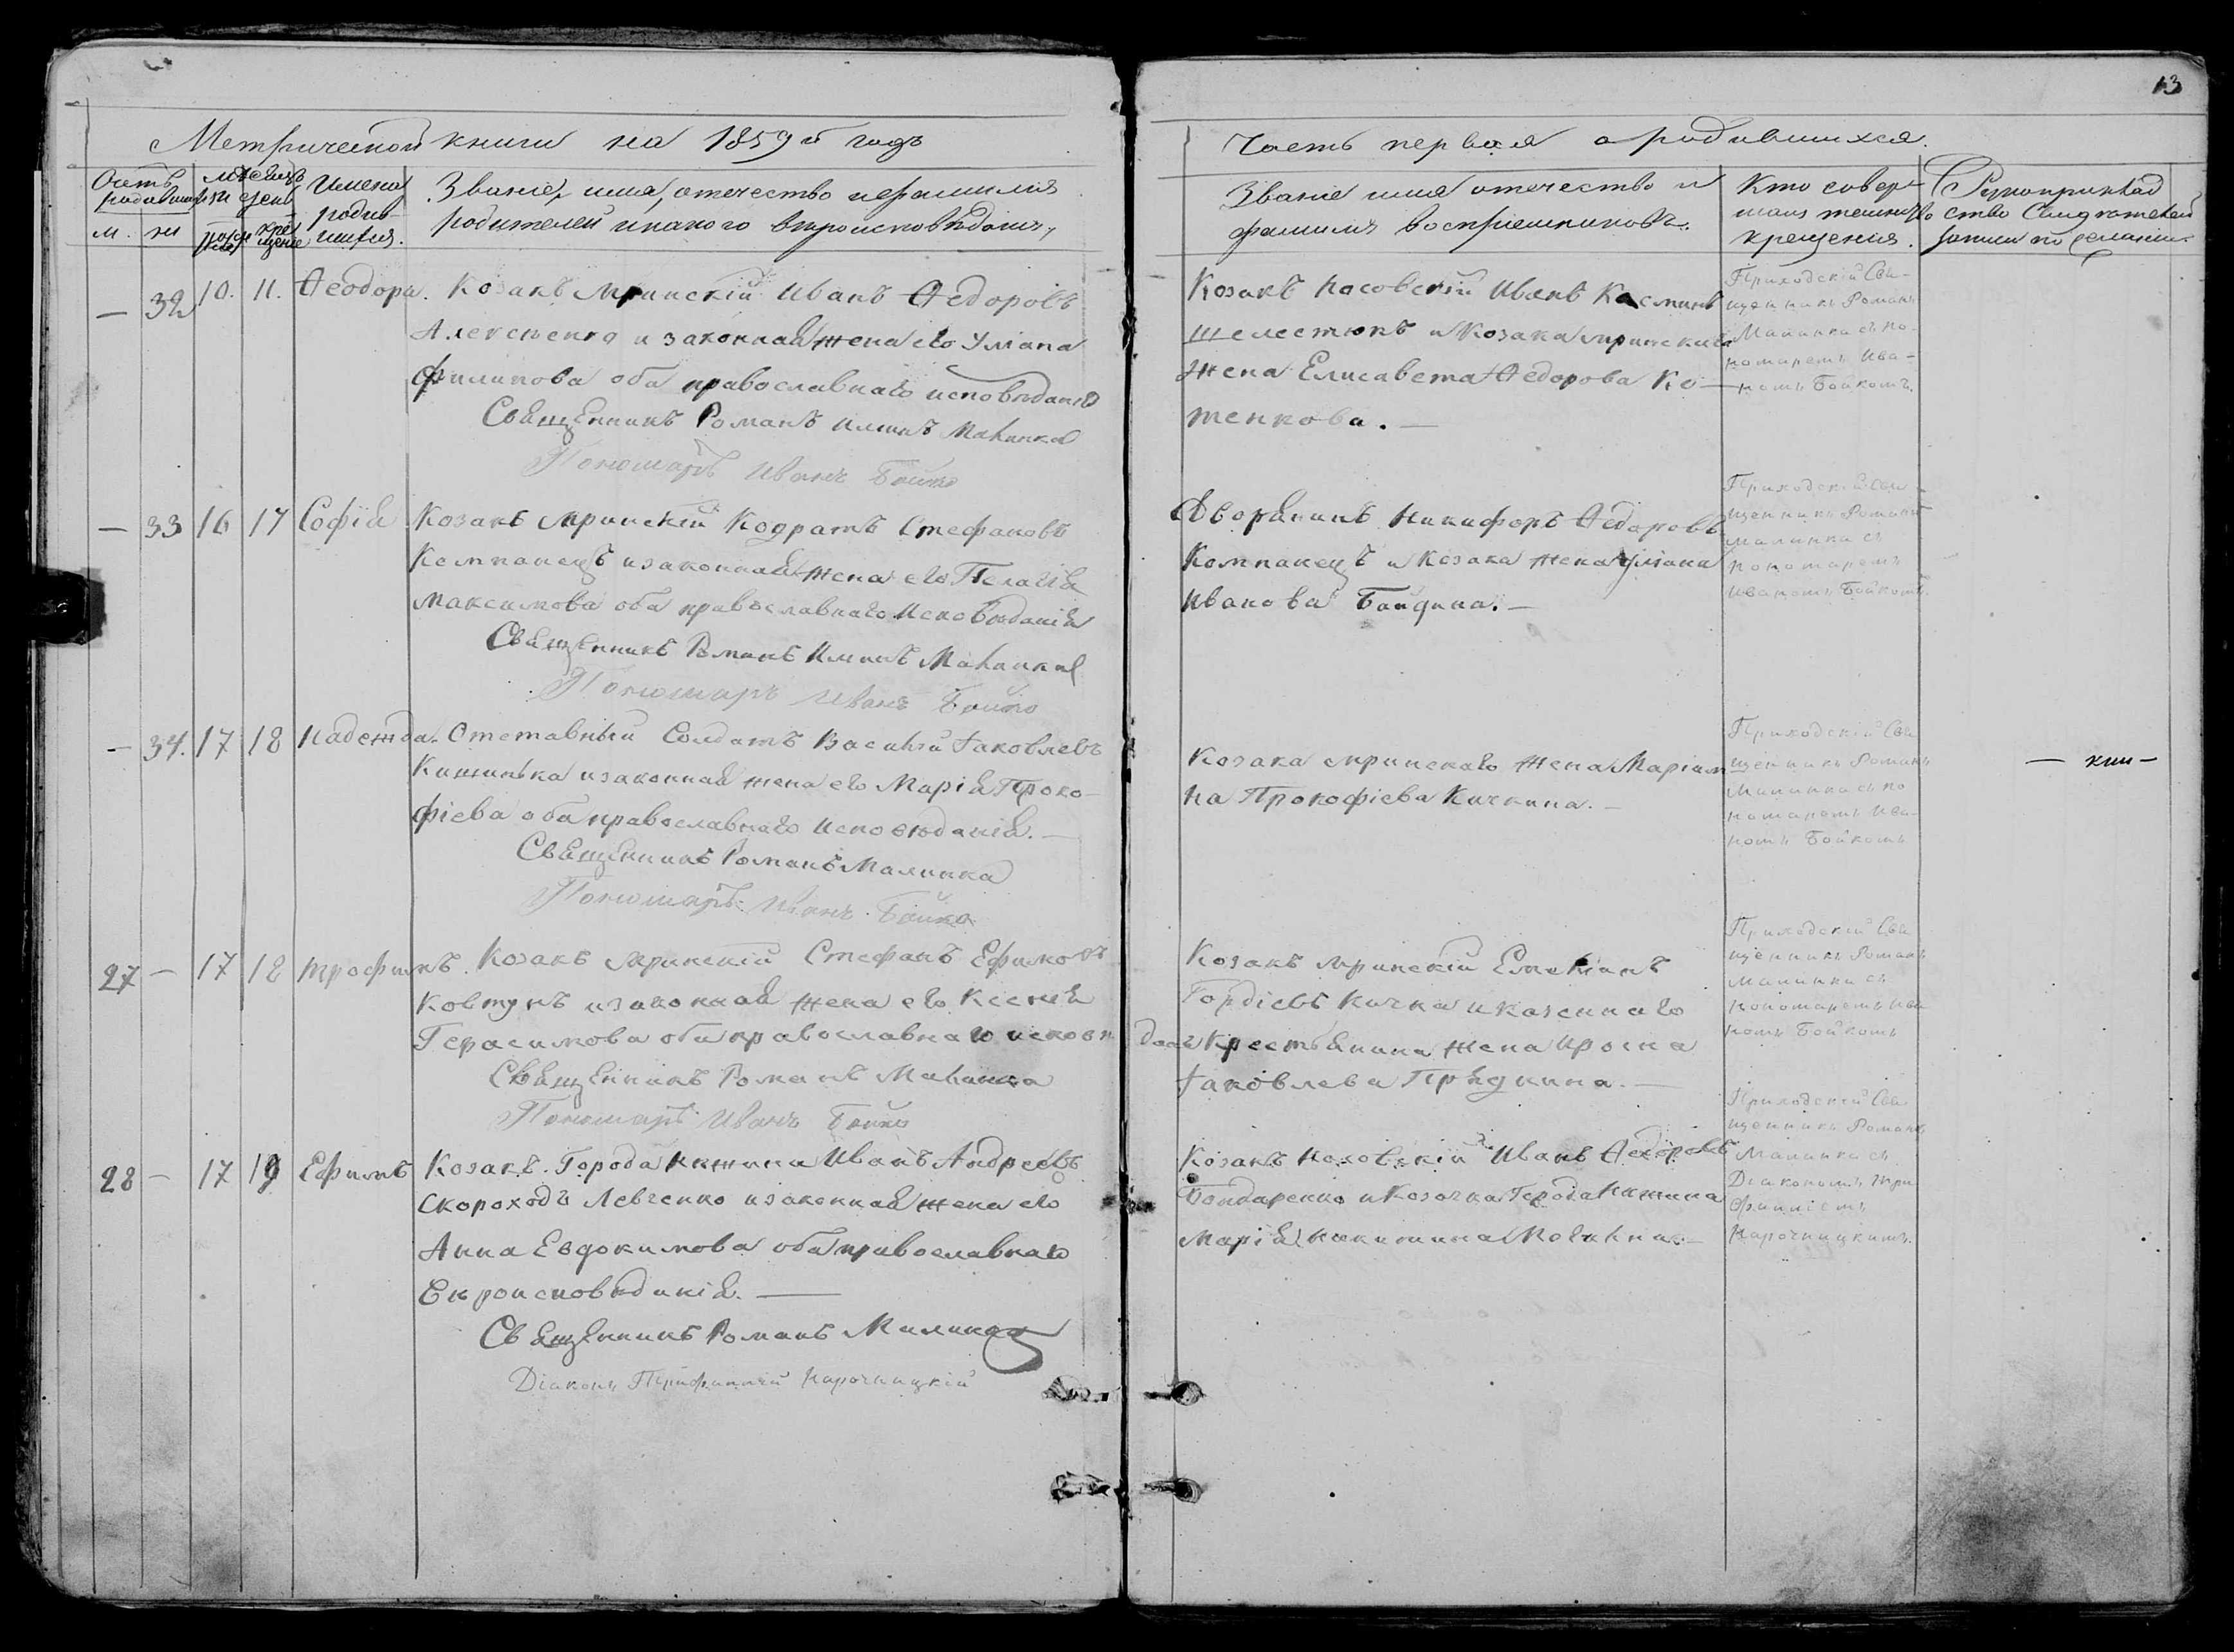 13
Метрической книги на 1859й годъ
Часть первая о родившихся.
Счетъ родившихся
м. ж
мѣсяцъ и день
рожденіе
крещеніе
Имена родившихся.
Званіе, имя, отечество и фамилія
родителей и какого вѣроисповѣданія,
Званіе имя отечество и
фамилія воспріемниковъ.
Кто совершалъ таинство
крещенія.
Рукоприклад
ство свидѣтелей
записи по желанію.
— 32 10. 11. Ѳеодора. Козакъ Мринскій Иванъ Ѳедоровъ
Алексѣенко и законная жена его Уліана
Филипова оба православнаго исповѣданія
Священникъ Романъ Малинка
Пономарь Иванъ Бойко
Козакъ Носовскій Иванъ Касминъ
Шелестюкъ и Козака мринскаго
жена Елисавета Ѳедорова Ко—
тенкова. —
Приходскій Свя-
щенникъ Романъ
Малинка съ по-
номаремъ Ива-
номъ Бойкомъ.
— 33 16 17 Софія Козакъ Мринскій Кодратъ Стефановъ
Компанецъ и законная жена его Пелагія
Максимова оба православнаго исповѣданія
Священникъ Романъ Малинка
Пономарь Иванъ Бойко
Дворянинъ Никифоръ Ѳедоровъ
Компанецъ и Козака жена Уліана
Иванова Байдина. —
Приходскій Свя-
щенникъ Романъ
Малинка съ
пономаремъ
Иваномъ Бойкомъ
— 34. 17 18 Надежда. Отставный Солдатъ Василій Іаковлевъ
Кишинька и законная жена его Марія Проко—
фіева оба православнаго исповѣданія. —
Священникъ Романъ Малинка
Пономарь Иванъ Бойко
Козака мринскаго жена Маріам
на Прокофіева Кичкина. —
Приходскій Свя
щенникъ Романъ
Малинка съ по
номаремъ Ива-
номъ Бойкомъ
27 — 17 18 Трофимъ. Козакъ Мринскій Стефанъ Ефимовъ
Ковтунъ и законная жена его Ксенія
Герасимова оба православнаго исповѣ
Священникъ Романъ Малинка
Пономарь Иванъ Бойко
Козакъ мринскій Емеліанъ
Гордіевъ Кичка и казеннаго
Крестьянина жена Ироина
Іаковлева
Приходскій Свя
щенникъ Романъ
Малинка съ
пономаремъ Ива
номъ Бойкомъ
28 — 17 19 Ефимъ Козакъ. Города Нѣжина Иванъ Андреевъ
Скороходъ Левченко и законная жена его
Анна Евдокимова оба православнаго
вѣроисповѣданія. —
Священникъ Романъ Малинка
Діаконъ Трифиллій Нарочницкій
Козакъ Носовскій Иванъ Ѳедоровъ
Бондаренко и Козачка Города Нѣжина
Марія Никитина
Приходскій Свя
щенникъ Романъ
Малинка съ
Діакономъ Три
филліемъ
Нарочницкимъ.